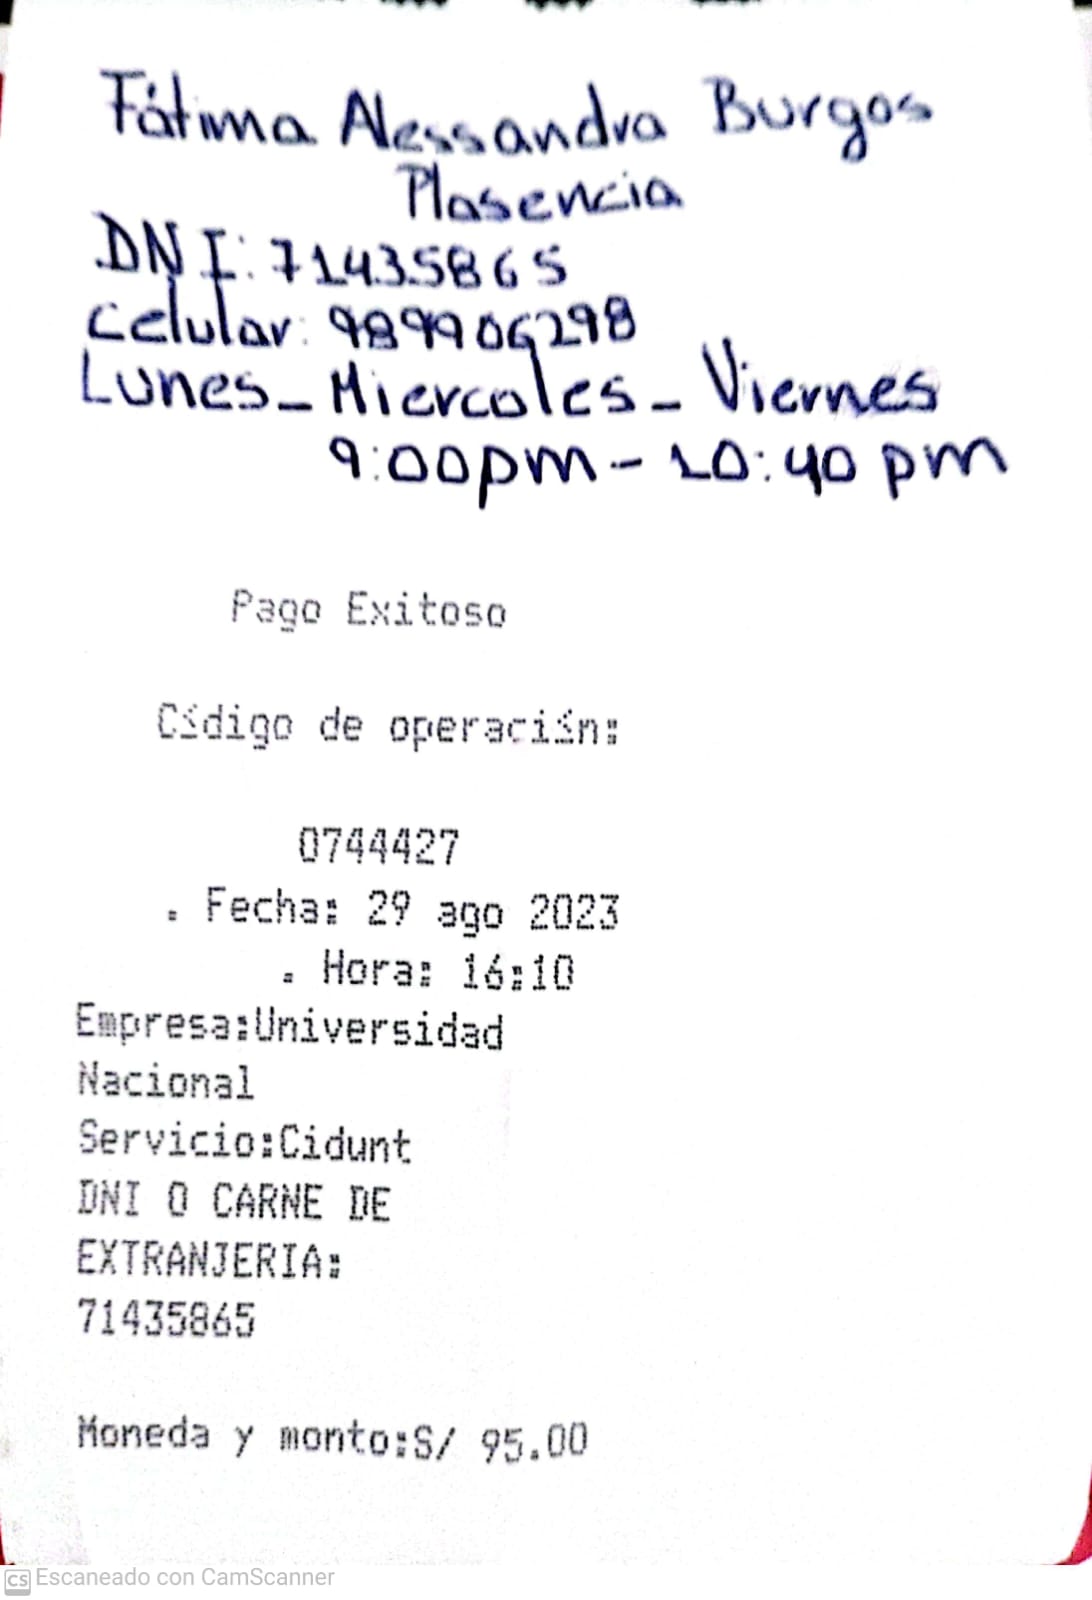 Fátima Alessandra Burgos
Plasencia
DNI: 71435865
Celular: 989906298
Lunes - Miercoles - Viernes
9:00pm - 10:40 pm
Pago Exitoso
Código de operación:
0744427
. Fecha: 29 ago 2023
. Hora: 16:10
Empresa:Universidad
Nacional
Servicio:Cidunt
DNI O CARNE DE
EXTRANJERIA:
71435865
Moneda y monto:S/ 95.00
CS Escaneado con CamScanner